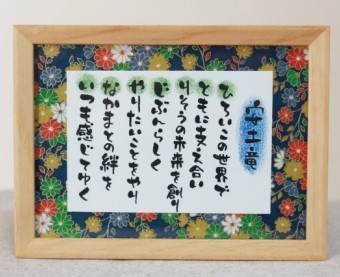 安土竜
ひろいこの世界で
ともに支え合い
りそうの未来を創り
じぶんらしく
やりたいことをやり
なかまとの絆を
いつも感じてゆく